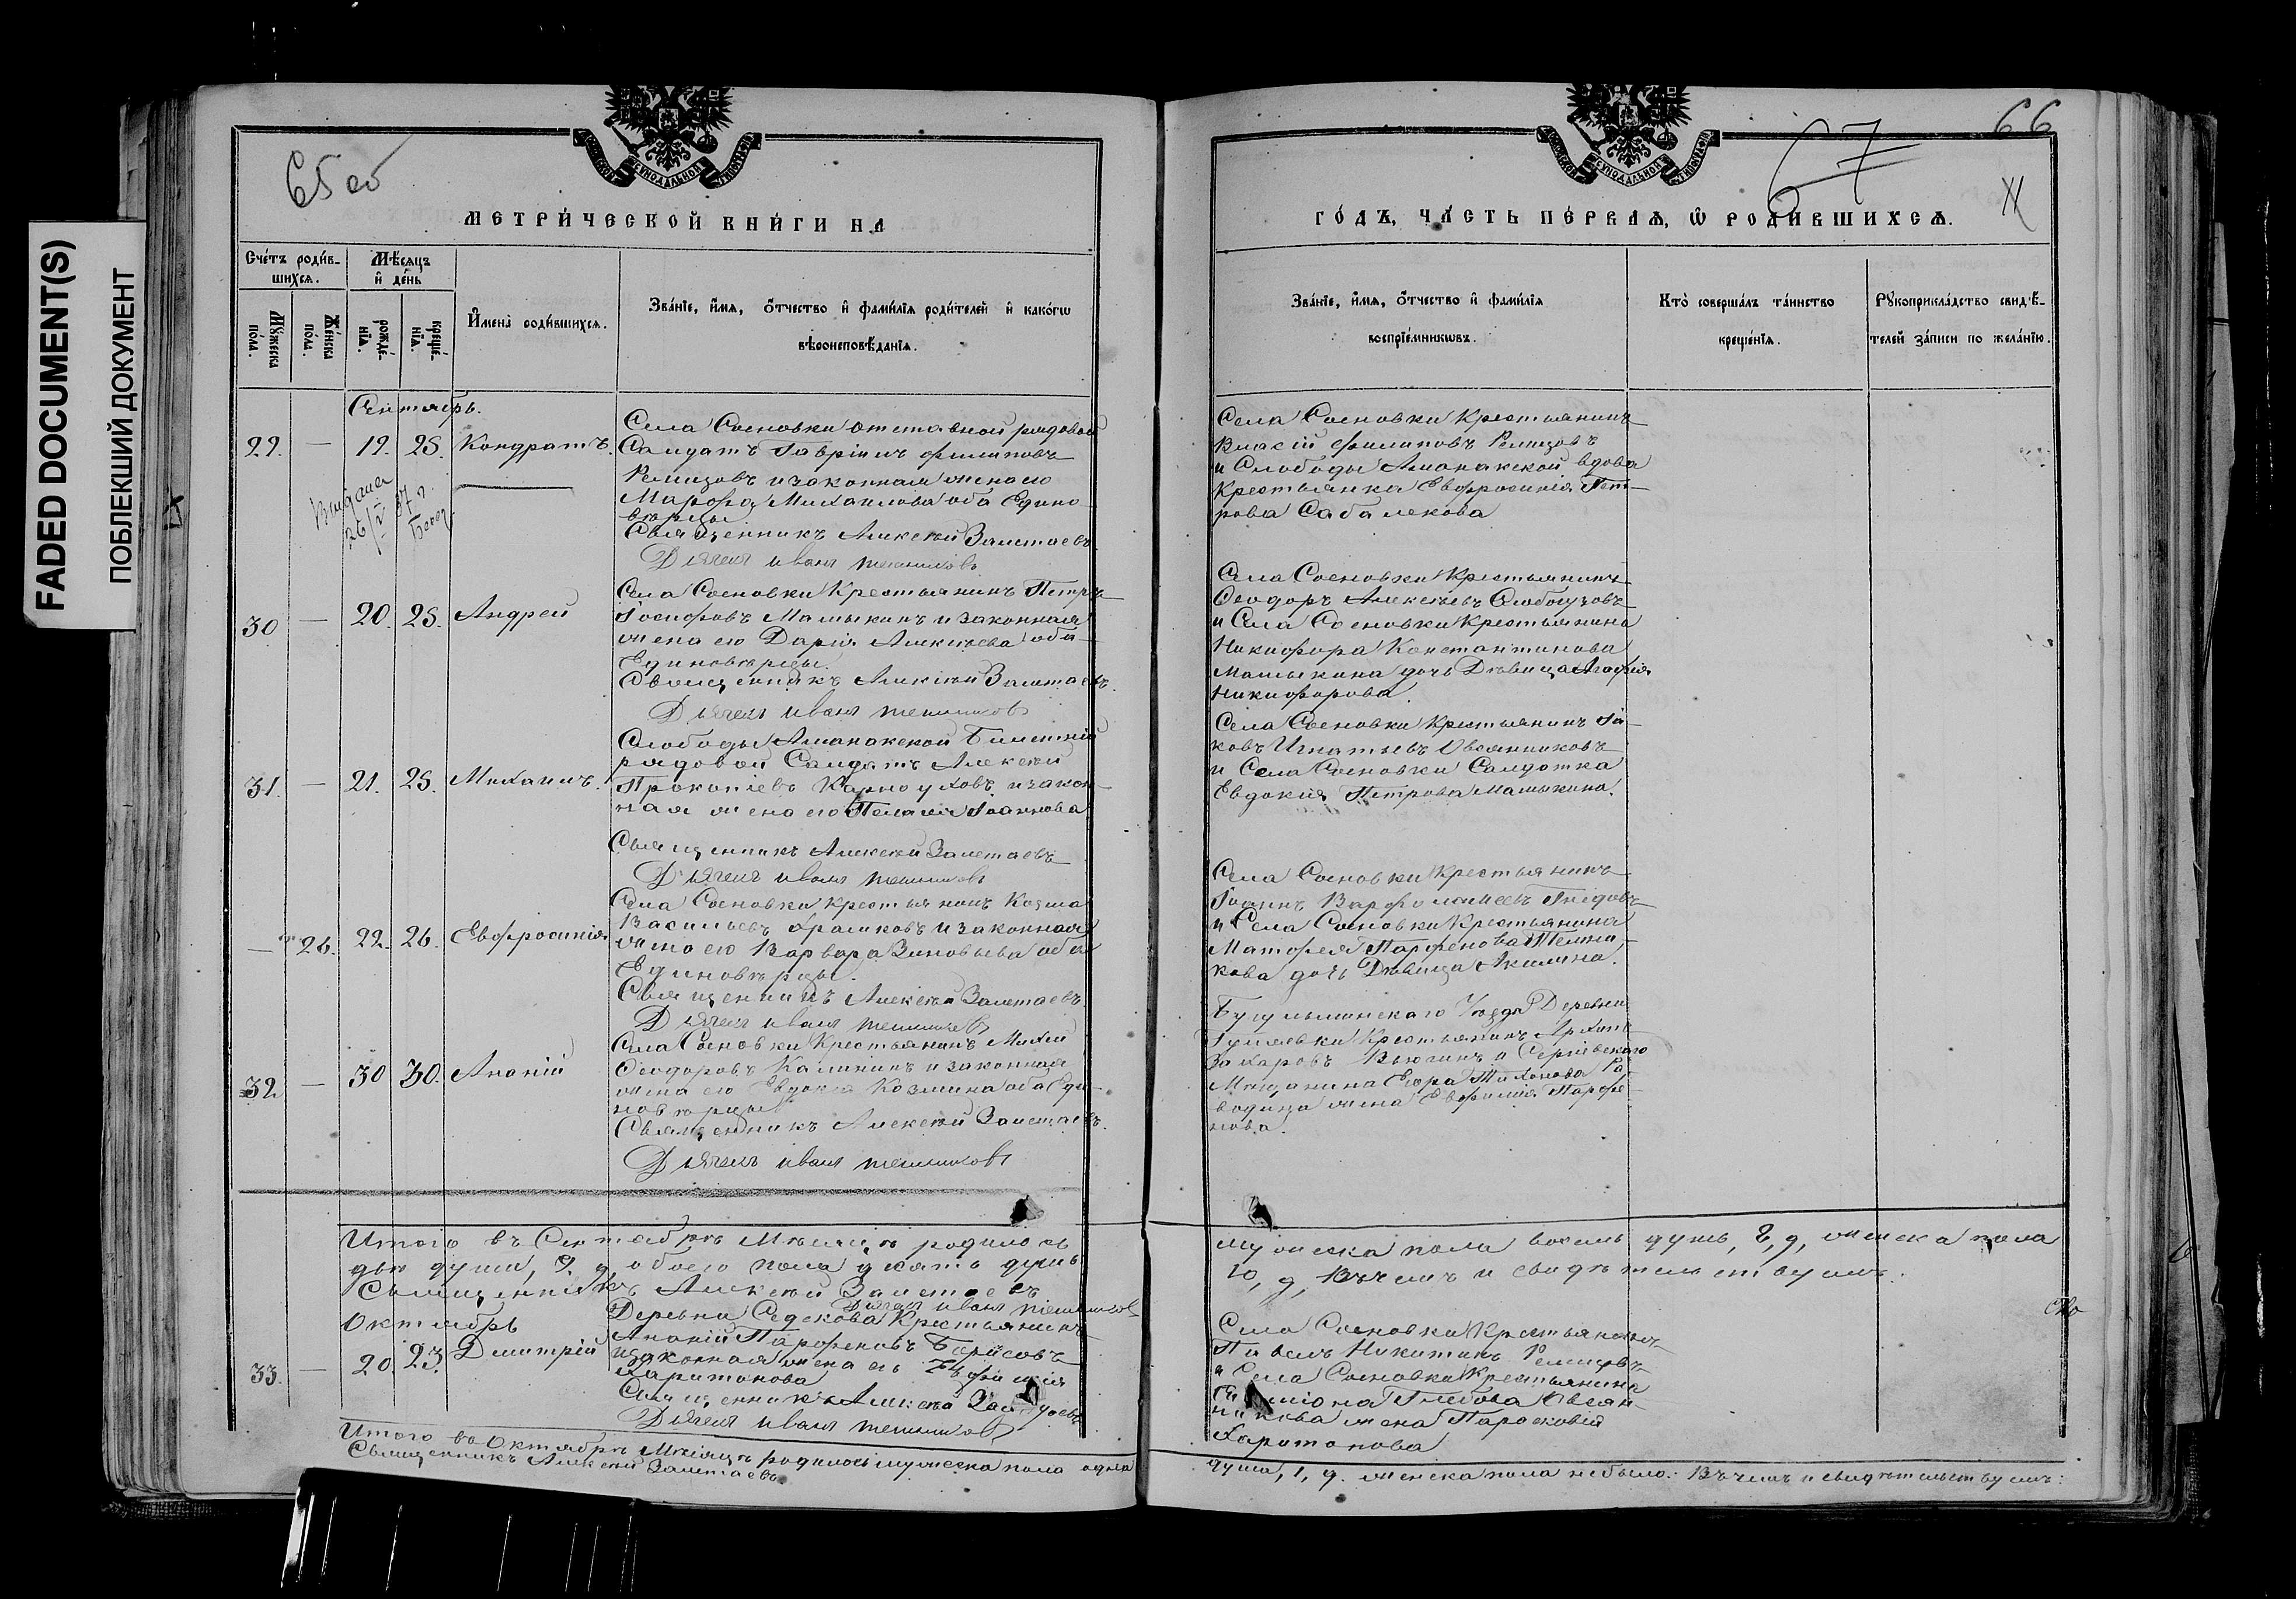 FADED DOCUMENT(S)
ПОБЛЕКШИЙ ДОКУМЕНТ
65 об
МЕТРИ́ЧЕСКОЙ КНИ́ГИ НА
Сче́тъ роди́в-
шихся.
Мѣ́сяцъ
и҆ де́нь
Мꙋ́жеска
по́ла.
Же́нска
по́ла.
рожде́-
нїѧ.
креще́-
нїѧ.
И҆мена̀ роди́вшихсѧ.
Зва́нїе, и҆́мѧ, ѻ҆́тчество и҆ фами́лїѧ роди́телей и҆ како́гѡ
вѣроисповѣ́данїѧ.
Сентябрь.
29. — 19. 25. Кондратъ.
Села Сосновки отставной рядовой
Солдатъ Гавріилъ Филиповъ
Ремизовъ и законная жена его
Марфа Михаилова оба Едино
верцы
Священникъ Алексей Залетаевъ
Дьячекъ Иванъ
Выдана
26/V 37 г.
30 — 20. 25. Андрей
Села Сосновки Крестьянинъ Петръ
Іосифовъ Малыкинъ и законная
жена его Дарія Алексѣева оба
Единовѣрцы.
Священникъ Алексѣй Залетаевъ.
Дьячекъ Иванъ
31. — 21. 25. Михаилъ.
Слободы Аманакской Билетній
рядовой Солдатъ Алексей
Прокопіевъ Карноуховъ и закон-
ная жена его Пелагія Іоаннова
Священникъ Алексей Залетаевъ
Дьячекъ Иванъ
— 26. 22. 26. Евфросинія
Села Сосновки крестьянинъ Козма
Васильевъ и законная
жена его Варвара Зиновьева оба
Единовѣрцы.
Священникъ Алексей Залетаевъ
Дьячекъ Иванъ
32 — 30 30. Ананій
Села Сосновки Крестьянинъ Михей
Феодоровъ Калининъ и законная
жена его Евдокія Козмина оба Еди-
новѣрцы
Священникъ Алексей Залетаевъ.
Дьячекъ Иванъ
Итого въ Сентябрѣ Мѣсяцѣ родилось
обоего пола душъ
Священникъ Алексей Залетаевъ
Дьячекъ Иванъ
Октябрь
33. — 20. 23. Дмитрій
Деревни Седякова Крестьянинъ
Ананій Парфеновъ Борисовъ
и законная жена его
Харитонова
Священникъ Алексей
Дьячекъ Иванъ
Итого въ Октябрѣ Мѣсяцѣ родилось мужеска пола одна
Священникъ Алексей Залетаевъ
66
67
ГО́ДЪ, ЧА́СТЬ ПЕ́РВАѦ, Ѡ҆ РОДИ́ВШИХСѦ.
Зва́нїе, и҆́мѧ, ѻ҆́тчество и҆ фами́лїѧ
воспрїе́мникѡвъ.
Кто̀ соверша́лъ та́инство
креще́нїѧ.
Рꙋкоприкла́дство свидѣ́-
телей за́писи по жела́нїю.
Села Сосновки Крестьянинъ
Власій Филиповъ Ремизовъ
и Слободы Аманакской вдова
Крестьянка Евфросинія Пет-
рова Сабалекова
Села Сосновки Крестьянинъ
Феодоръ Алексѣевъ
и Села Сосновки Крестьянина
Никифора Константинова
Малыкина дочь Дѣвица Агафія
Никифорова
Села Сосновки Крестьянинъ Іа-
ковъ Игнатьевъ Овсянниковъ
и Села Сосновки Солдатка
Евдокія Петрова Малыкина.
Села Сосновки Крестьянинъ
Іоаннъ Варфоломеевъ
и Села Сосновки Крестьянина
Матфея Парфенова
кова дочь Дѣвица Акилина.
Бугульминскаго Уѣзда Деревни
Крестьянинъ Архипъ
Захаровъ и Сергіевскаго
Мещанина Егора Тихонова
жена Евфимія Парфе-
нова.
мужеска пола восемь душъ, 8, д, женска пола
10, д, Въ чемъ и свидѣтельствуемъ.
Села Сосновки Крестьянинъ
Павелъ Никитинъ Ремизовъ
и Села Сосновки Крестьянина
Глебова Овсян-
никова жена Параскевія
Харитонова
душа, 1, д. женска пола не было. Въ чемъ и свидѣтельствуемъ: